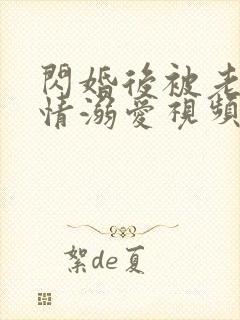 閃婚後被老
情溺愛視頻
絮de夏